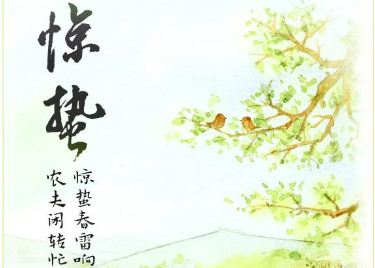 惊蛰
惊蛰春雷响
农夫闲转忙